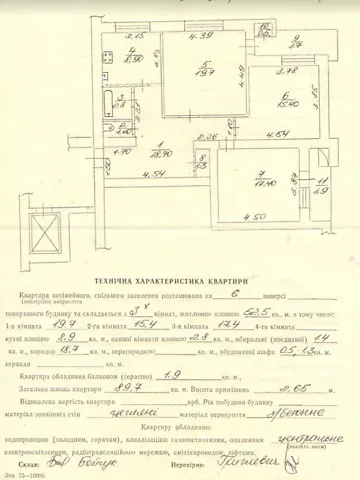 3.15
4.39
10
0.5
4
8.90
5
19.7
4.49
9
2.7
3.78
6
15.40
3
2.8
2
1.40
1.90
1
18.90
4.54
8
1.3
4.64
7
17.40
11
1.9
4.50
ТЕХНІЧНА ХАРАКТЕРИСТИКА КВАРТИРИ
Квартира посімейного, спільного заселення розташована на 6 поверсі
(непотрібне викреслити)
поверхового будинку та складається з 3х кімнат, житловою площею 52.5 кв. м, з тому числі:
1-а кімната 19,7 2-га кімната 15,4 3-я кімната 17,4 4-та кімната
кухні площею 8.9 кв. м, ванної кімнати площею 2.8 кв. м, вбиральні (поєднаної) 1.4
кв. м, коридор 18,7 кв. м, перегородкою кв. м, вбудованої шафи 0.5, 1.3 кв. м,
веранди кв. м.
Квартира обладнана балконом (терасою) 1.9 кв. м.
Загальна площа квартири 89,7 кв. м. Висота приміщень 2.65 м.
Відновлена вартість квартири крб. Рік побудови будинку
матеріал зовнішніх стін матеріал перекриття
Квартиру обладнано:
водопроводом (холодним, гарячим), каналізацією газопостачанням, опаленням
електроосвітленням, радіотрансляційною мережею, сміттєпроводом, ліфтами.
Склав: Перевірив:
Зам. 75—100т.